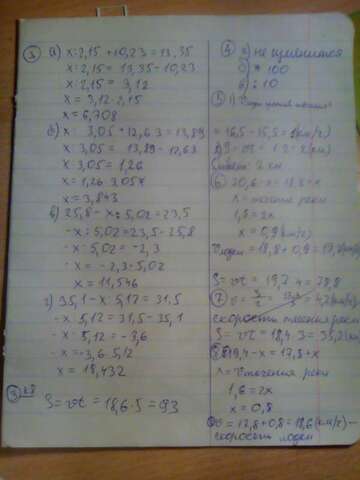 ③ а) x:2,15 + 10,23 = 13,35
x:2,15 = 13,35 - 10,23
x:2,15 = 3,12
x = 3,12 · 2,15
x = 6,708
б) x: 3,05 + 12,63 = 13,89
x: 3,05 = 13,89 - 12,63
x:3,05 = 1,26
x = 1,26 · 3,05
x = 3,843
в) 25,8 - x : 5,02 = 23,5
-x : 5,02 = 23,5 - 25,8
-x : 5,02 = -2,3
-x = -2,3 · 5,02
x = 11,546
г) 35,1 - x : 5,12 = 31,5
-x : 5,12 = 31,5 - 35,1
-x : 5,12 = -3,6
-x = -3,6 · 5,12
x = 18,432
S = vt = 18,6 · 5 = 93
④ а) не
б) * 100
в) : 10
⑤ 1)
= 16,5 - 15,5 = 1 (км/г)
= 1 · 2 = 2 (км)
2 км
⑥ 20,6 - x = 18,8 + x
x = течение реки
1,8 = 2x
x = 0,9 (км/г)
= 18,8 + 0,9 = 19,7
S = vt = 19,7 · 4 = 78,8
⑦
скорость течения реки
S = vt = 18,4 · 3 = 55,2
19,4 - x = 17,8 + x
x = v течения реки
1,6 = 2x
x = 0,8
v = 17,8 + 0,8 = 18,6 (км/г) -
скорость лодки